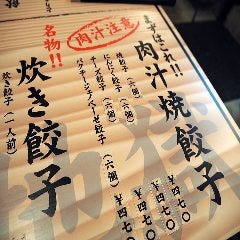 まずはこれ!!
肉汁焼餃子
焼餃子(六個) ¥470
にんにく餃子(六個) ¥470
チーズ餃子(六個) ¥470
パクチージェノベーゼ餃子(六個) ¥470
肉汁注意
名物!!
炊き餃子
炊き餃子(一人前)